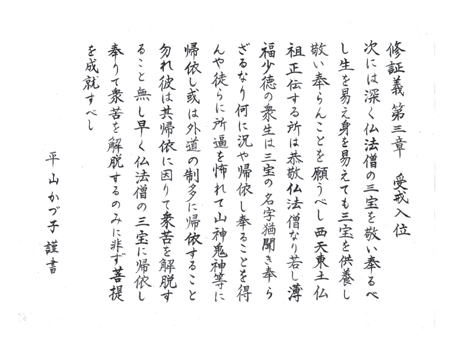 修証義 第三章 受戒入位
次には深く仏法僧の三宝を敬い奉るべ
し生を易え身を易えても三宝を供養し
敬い奉らんことを願うべし西天東土仏
祖正伝する所は恭敬仏法僧なり若し薄
福少徳の衆生は三宝の名字猶聞き奉ら
ざるなり何に況や帰依し奉ることを得
んや徒らに所逼を怖れて山神鬼神等に
帰依し或は外道の制多に帰依すること
勿れ彼は共帰依に因りて衆苦を解脱す
ること無し早く仏法僧の三宝に帰依し
奉りて衆苦を解脱するのみに非ず菩提
を成就すべし
平山かづ子謹書